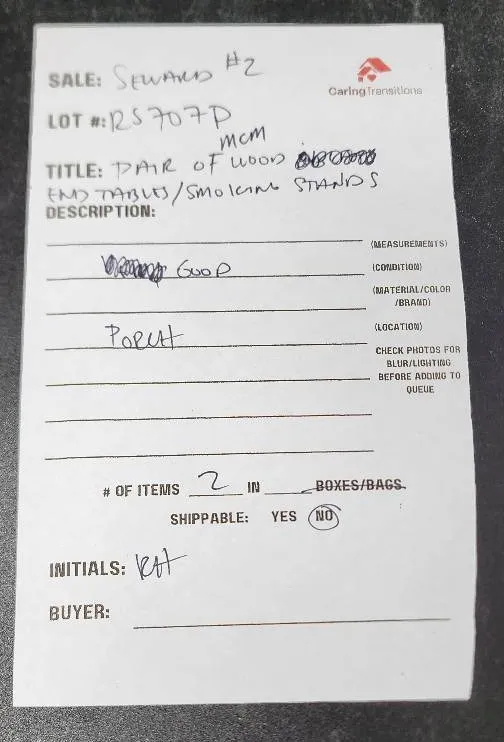 SALE: SEWARD #2
CaringTransitions
LOT #: RS707P
MCM
TITLE: PAIR OF WOOD
END TABLES/SMOKING STANDS
DESCRIPTION:
(MEASUREMENTS)
GOOD (CONDITION)
(MATERIAL/COLOR
/BRAND)
PORCH (LOCATION)
CHECK PHOTOS FOR
BLUR/LIGHTING
BEFORE ADDING TO
QUEUE
# OF ITEMS 2 IN BOXES/BAGS
SHIPPABLE: YES NO
INITIALS: KH
BUYER: